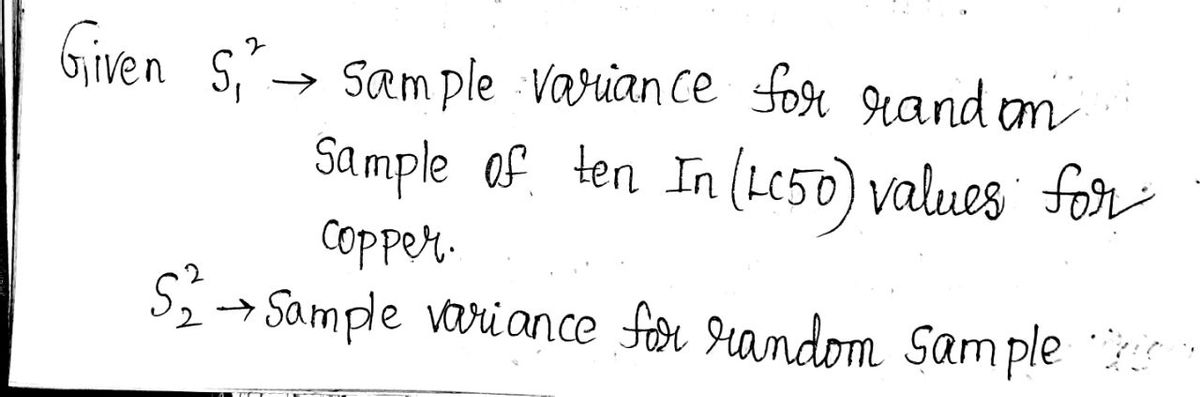 Given S₁² → Sample variance for random
Sample of ten In (LC50) values for
copper.
S₂² → Sample variance for random Sample